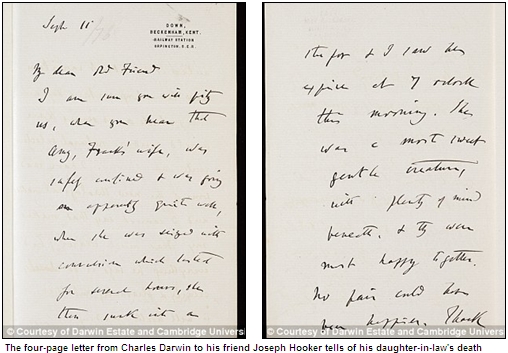 Sept 11
DOWN,
BECKENHAM, KENT.
RAILWAY STATION
ORPINGTON. S.E.R.
My dear old Friend
I am sure you will pity
us, when you hear that
Amy, Frank's wife, was
safely confined & was going
on apparently quite well,
when she was seized with
convulsions which lasted
for several hours, she
then sunk into a
© Courtesy of Darwin Estate and Cambridge Univers
stupor & I saw her
expire at 7 oclock
this morning. She
was a most sweet
gentle creature,
with plenty of mind
beneath, & they were
most happy together.
No pair could have
been happier. Thank
© Courtesy of Darwin Estate and Cambridge Univers
The four-page letter from Charles Darwin to his friend Joseph Hooker tells of his daughter-in-law's death